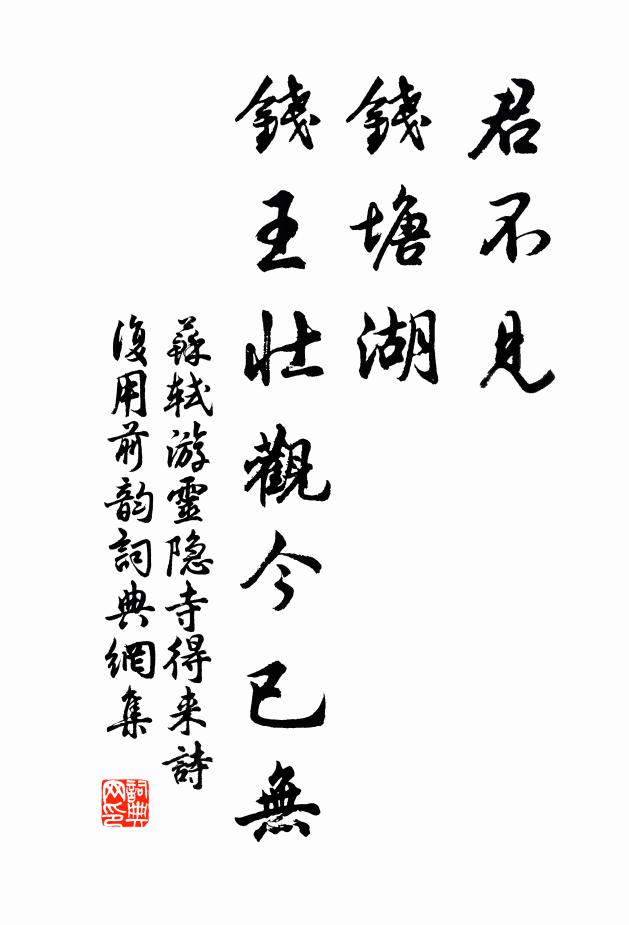 君不見
錢塘湖
錢王壯觀今已無
蘇軾游靈隐寺得来詩
復用前韵詞典網集
詞典
网印